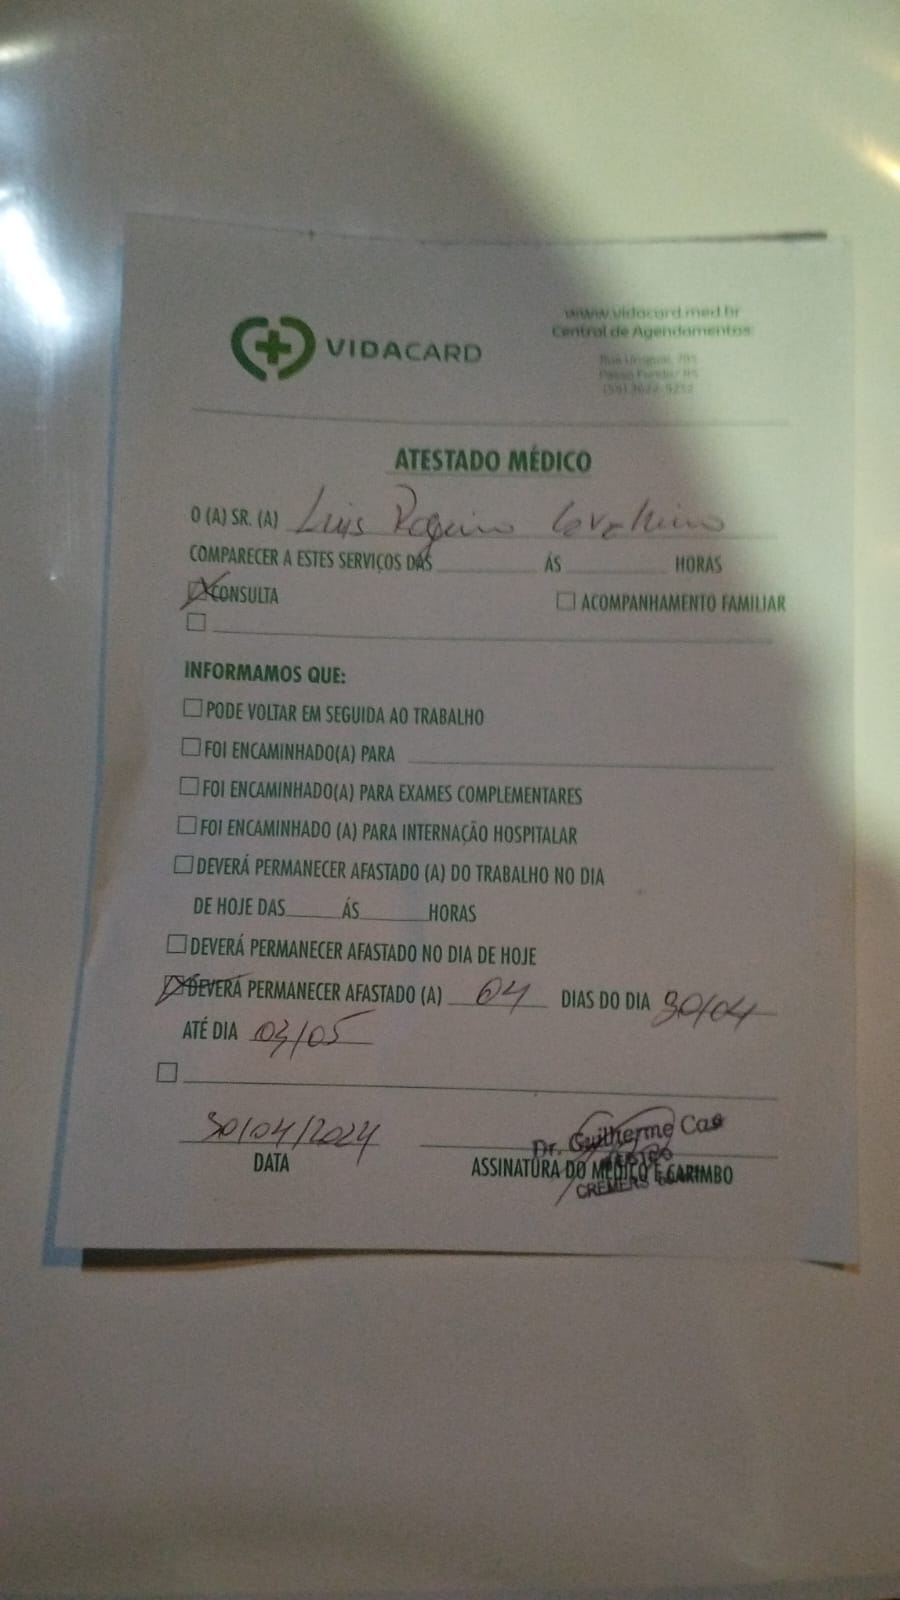 VIDACARD
www.vidacard.med.br
Central de Agendamentos:
Rua Uruguai,
Passo Fundo/ RS
ATESTADO MÉDICO
O (A) SR. (A) Luis
COMPARECER A ESTES SERVIÇOS DAS ____ ÁS ____ HORAS
CONSULTA
ACOMPANHAMENTO FAMILIAR
INFORMAMOS QUE:
PODE VOLTAR EM SEGUIDA AO TRABALHO
FOI ENCAMINHADO(A) PARA
FOI ENCAMINHADO(A) PARA EXAMES COMPLEMENTARES
FOI ENCAMINHADO (A) PARA INTERNAÇÃO HOSPITALAR
DEVERÁ PERMANECER AFASTADO (A) DO TRABALHO NO DIA
DE HOJE DAS ____ ÁS ____ HORAS
DEVERÁ PERMANECER AFASTADO NO DIA DE HOJE
DEVERÁ PERMANECER AFASTADO (A) 04 DIAS DO DIA 30/04
ATÉ DIA 03/05
30/04/2024
Dr. Guilherme
DATA
ASSINATURA DO MÉDICO E CARIMBO
CREMERS